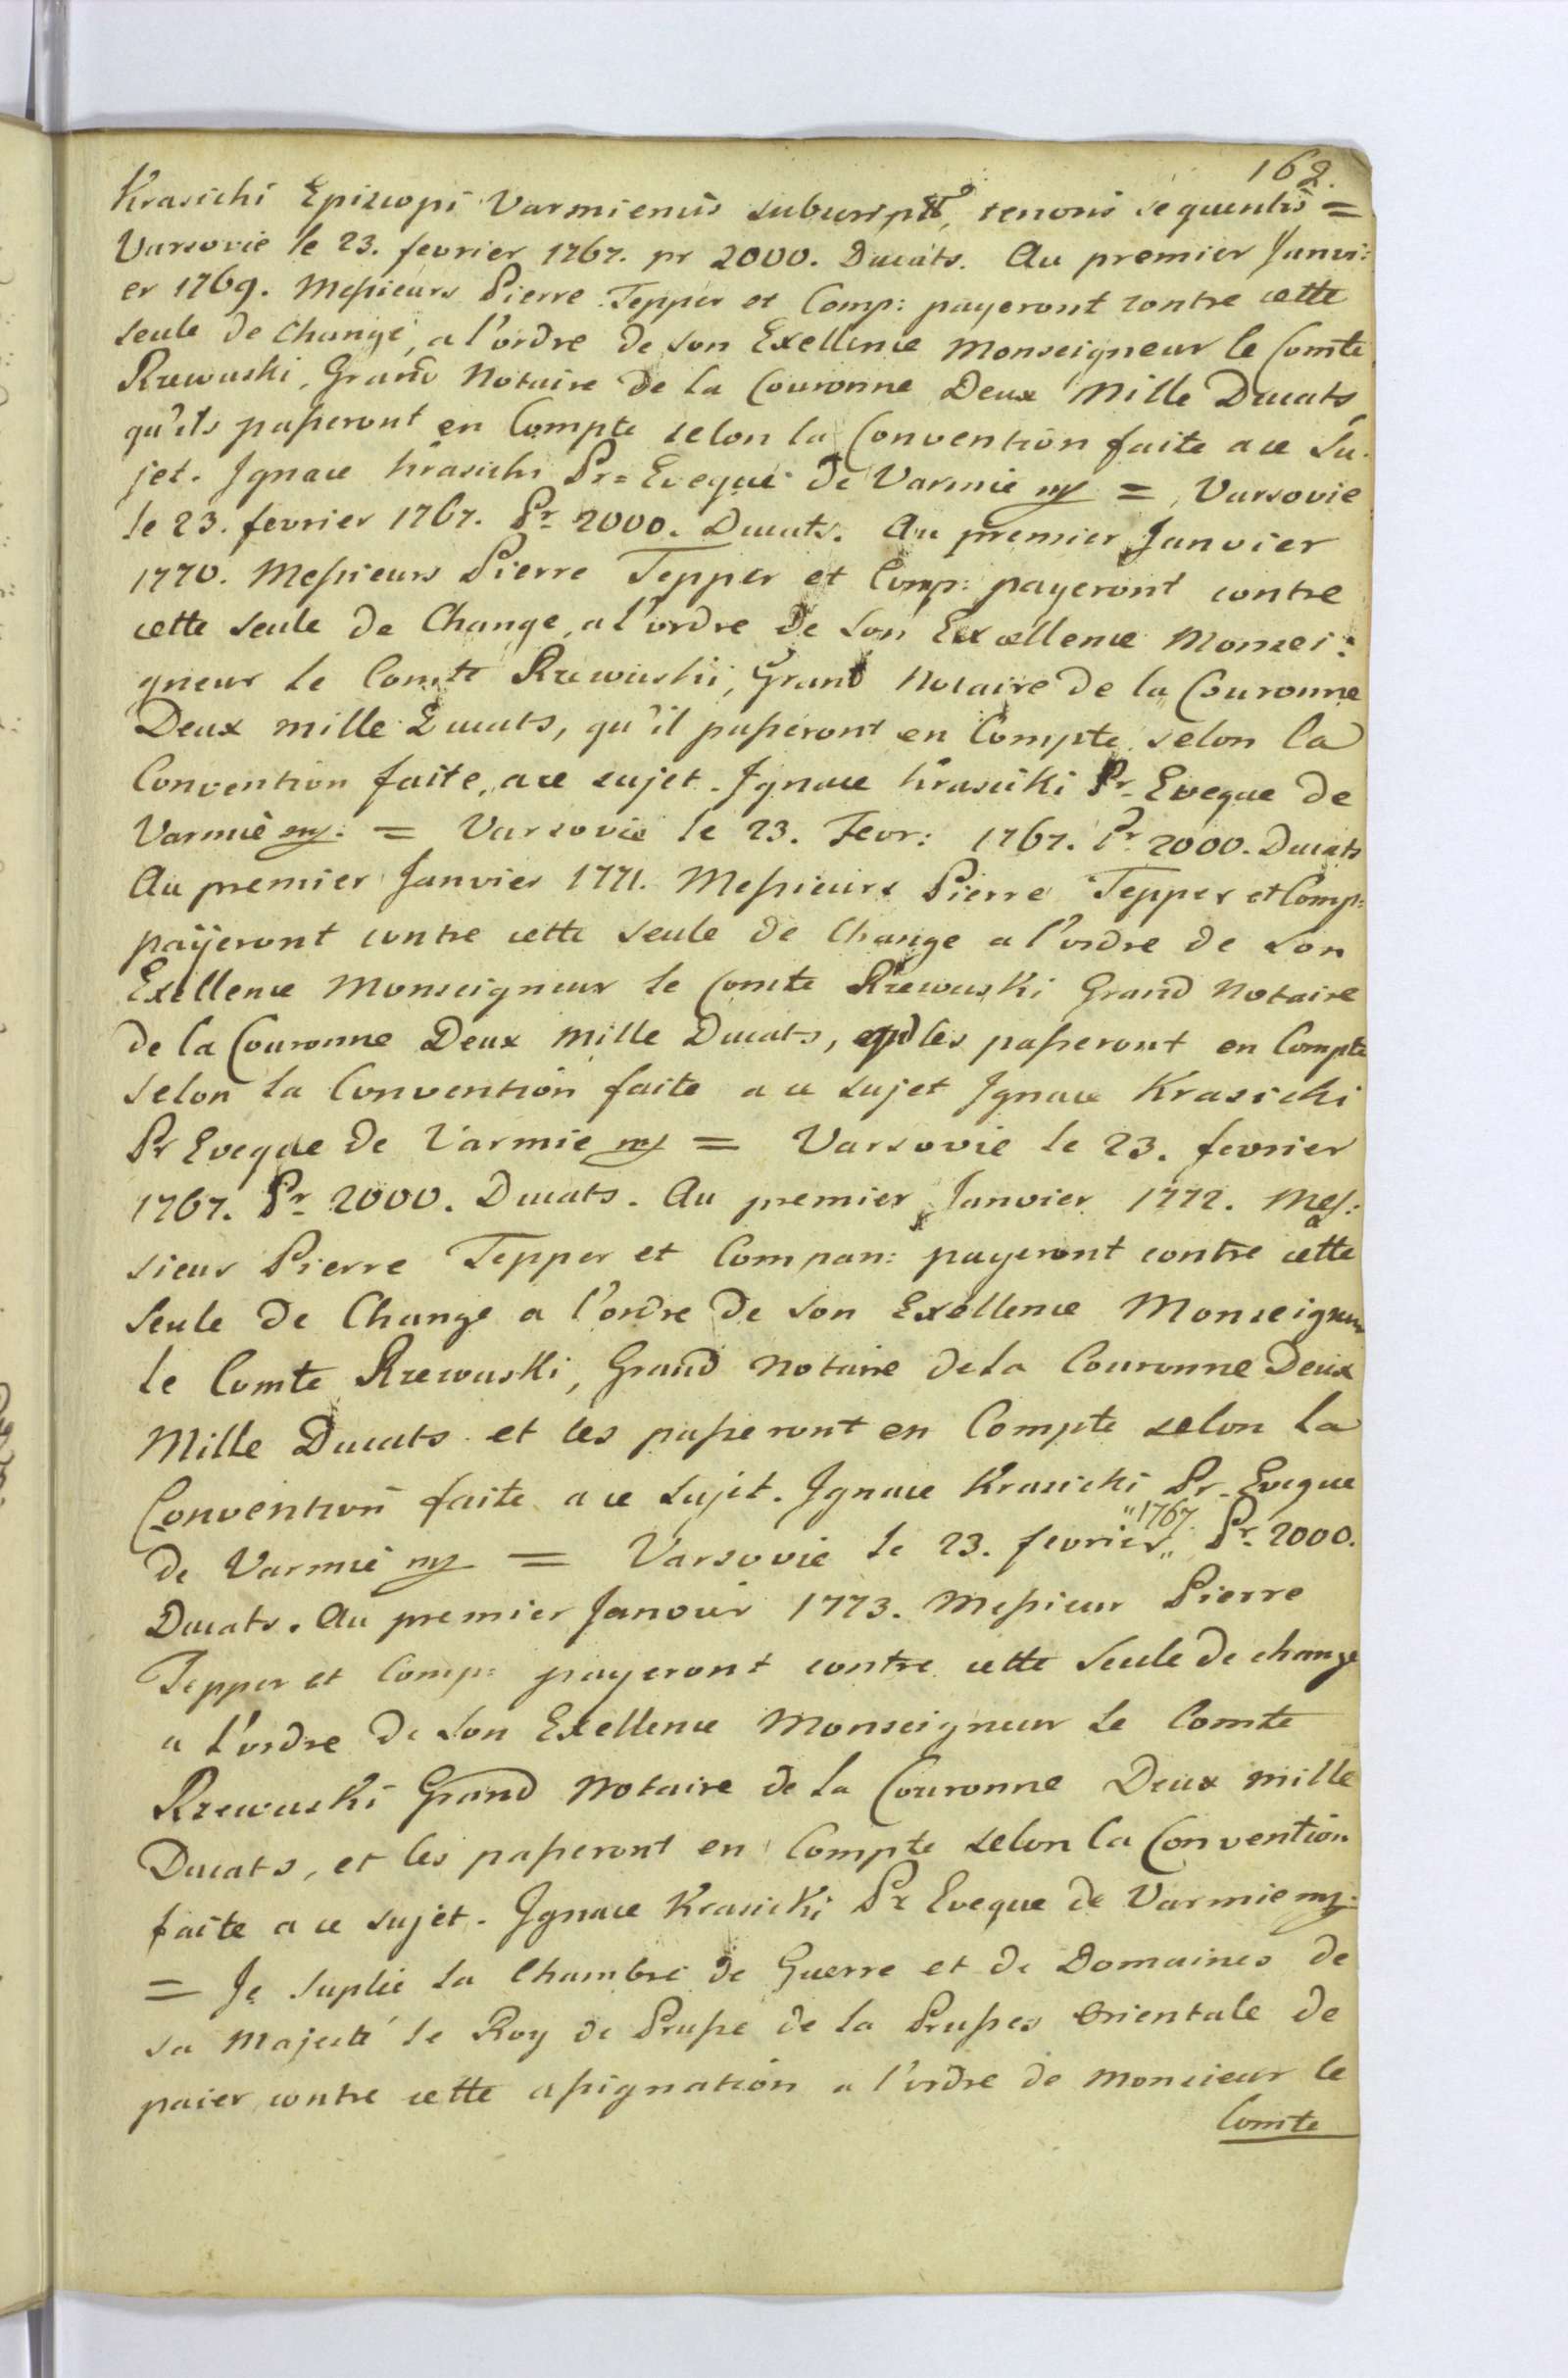 162.
Krasicki Episcopi Varmiensis subscript, tenoris sequentis =
Varsovie le 23. fevrier 1767. pr 2000. Ducats. Au premier Janvi:
er 1769. Messieurs Pierre Tepper et Comp: payeront contre cette
seule de Change, a l'ordre de son Exellence Monseigneur le Comte
Rzewuski, Grand Notaire de la Couronne Deux Mille Ducats
qu'ils passeront en Compte selon la Convention faite a ce Su.
jet. Ignace Krasicki Pr= Eveque de Varmie mp = Varsovie
le 23. fevrier 1767. Pr 2000. Ducats. Au premier Janvier
1770. Messieurs Pierre Tepper et Comp: payeront contre
cette seule de Change, a l'ordre de son Excellence Monsei:
gneur le Comte Rzewuski, Grand Notaire de la Couronne
Deux mille Ducats, qu'il passeront en Compte selon la
Convention faite, a ce sujet. Ignace Krasicki Pr. Eveque de
Varmie mp. = Varsovie le 23. Fevr: 1767. Pr 2000. Ducats
Au premier Janvier 1771. Messieurs Pierre Tepper et Comp:
payeront contre cette seule de Change a l'ordre de son
Exellence Monseigneur le Comte Rzewuski Grand Notaire
de la Couronne Deux Mille Ducats, les passeront en Compte
selon la Convention faite a ce sujet Ignace Krasicki
Pr Eveque de Varmie mp = Varsovie le 23. fevrier
1767. Pr 2000. Ducats. Au premier Janvier 1772. Mes:
sieur Pierre Tepper et Compan: payeront contre cette
Seule de Change a l'ordre de son Exellence Monseigneur
le Comte Rzewuski, Grand Notaire de la Couronne Deux
Mille Ducats et les passeront en Compte selon la
Convention faite a ce Sujet. Ignace Krasicki Pr. Eveque
de Varmie mp = Varsovie le 23. fevrier "1767." Pr. 2000.
Ducats. Au premier Janvier 1773. Messieur Pierre
Tepper et Comp: payeront contre cette Seule de change
a l'ordre de son Exellence Monseigneur le Comte
Rzewuski Grand Notaire de la Couronne Deux mille
Ducats, et les passeront en Compte selon la Convention
faite a ce sujet. Ignace Krasicki Pr Eveque de Varmie mp.
= Je suplie la Chambre de Guerre et de Domaines de
sa Majesté le Roy de Prusse de la Prusses Orientale de
paier contre cette assignation a l'ordre de Monsieur le
Comte